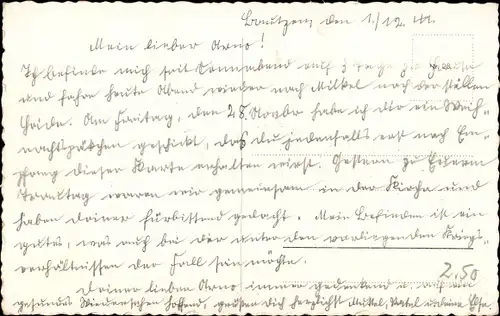 Bautzen, den 1./12. 41.
Mein lieber Arno!
Ich befinde mich seit Sonnabend auf 3 Tage zu Hause
und fahre heute Abend wieder nach Milkel nach der stillen
Heide. Am Freitag, den 28. Novbr habe ich Dir ein Weih-
nachtspäckchen geschickt, daß du jedenfalls erst nach Em-
pfang dieser Karte erhalten wirst. Gestern zu Eurem
Trautag waren wir gemeinsam in der Kirche und
haben deiner fürbittend gedacht. Mein Befinden ist ein
gutes, was auch bei dir unter den vorliegenden Kriegs-
verhältnissen der Fall sein möchte.
Deiner lieben Arno immer gedenkend u. auf ein
gesundes Wiedersehen hoffend, grüßen Dich herzlichst Muttel, Vatel u. deine Else.
2.50